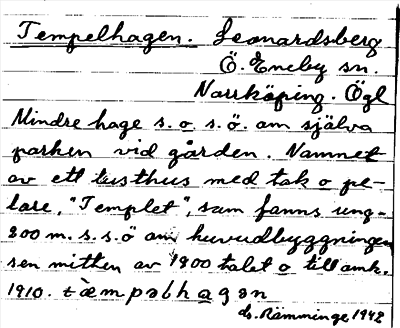 Tempelhagen. Leonardsberg
Ö. Eneby sn.
Norrköping. Ögl
Mindre hage s. o s. ö. om själva
parken vid gården. Namnet
av ett lusthus med tak o pe-
lare, "Templet", som fanns ung.
200 m. s. s. ö om huvudbyggningen
sen mitten av 1800 talet o till omk.
1910. tæmpəlhagən
ds. Rämminge 1942